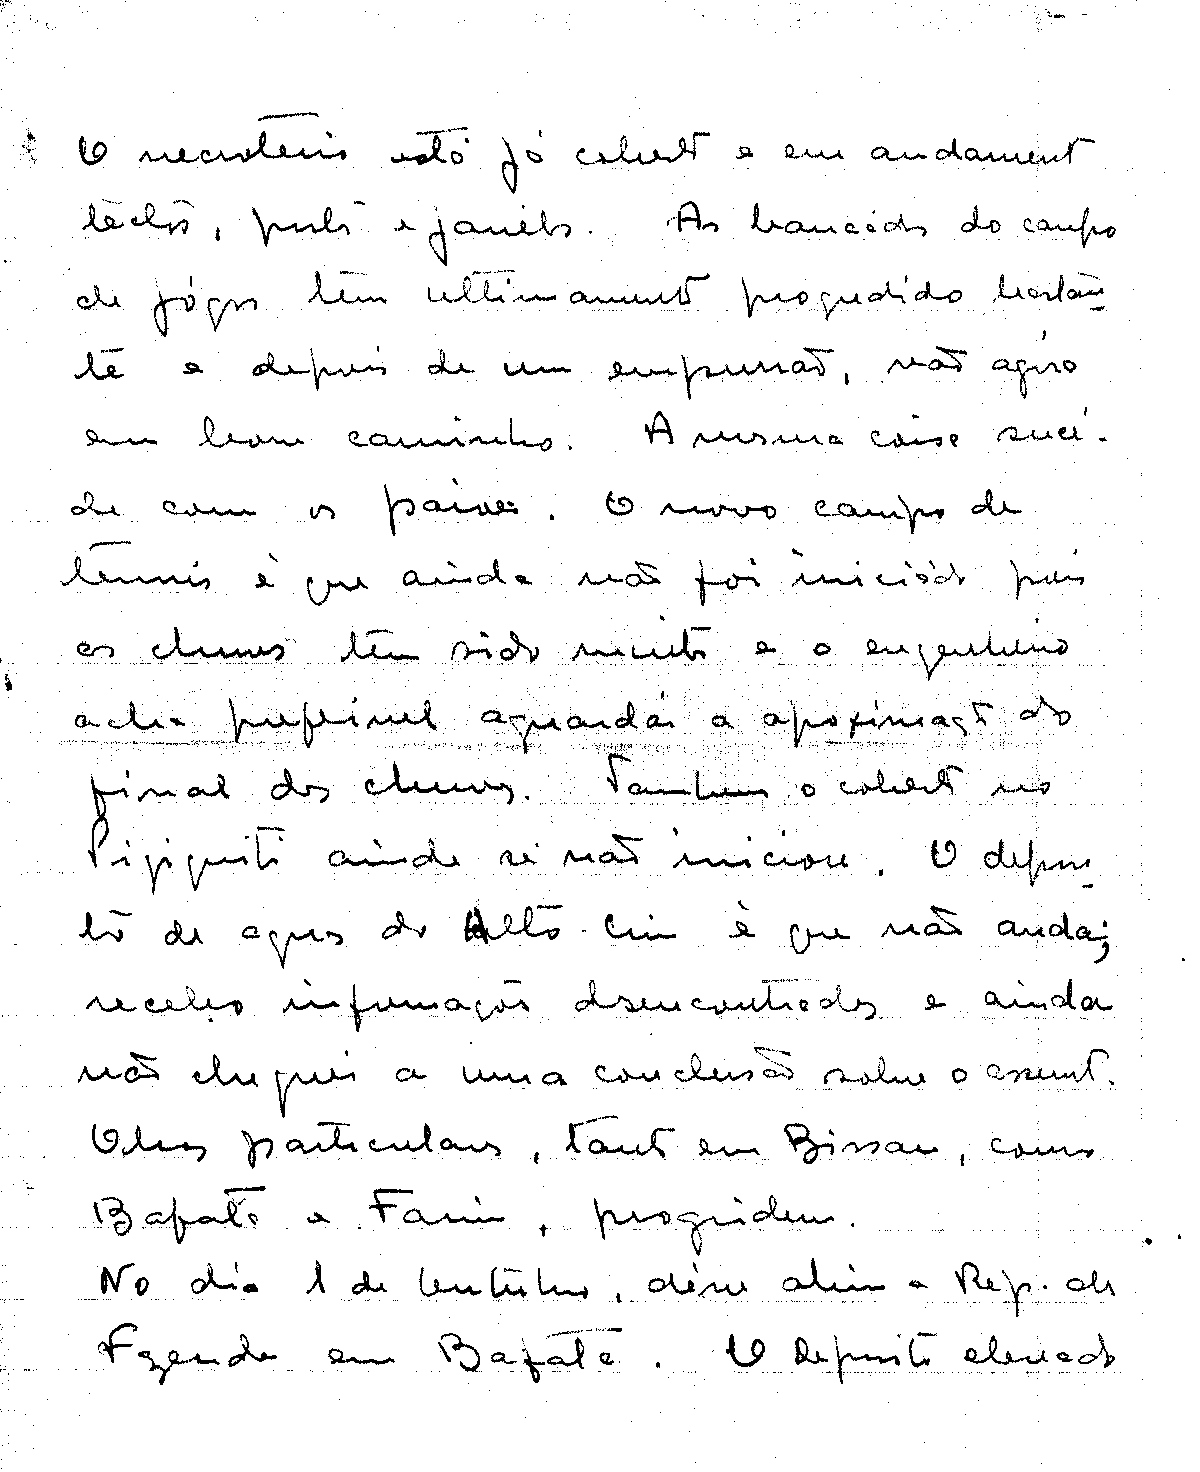 O necrotério está já coberto e em andamento
téctos, portas e janelas. As bancadas do campo
de jógos têm ultimamente progredido bastan-
te e depois de um empurrão, vão agora
em bom caminho. A mesma coisa suce-
de com os paióes. O novo campo de
tennis é que ainda não foi iniciado pois
as chuvas têm sido muitas e o engenheiro
acha preferivel aguardár a aproximação do
final das chuvas. Tambem o coberto no
Pigiguiti ainda se não iniciou. O deposi-
to de aguas do Alto Crim é que não anda;
recebo informações desencontradas e ainda
não cheguei a uma conclusão sobre o assunto.
Obras particulares, tanto em Bissau, como
Bafatá e Farim, progridem.
No dia 1 de Setembro, déve abrir a Rep. de
Fazenda em Bafatá. O Deposito elevado